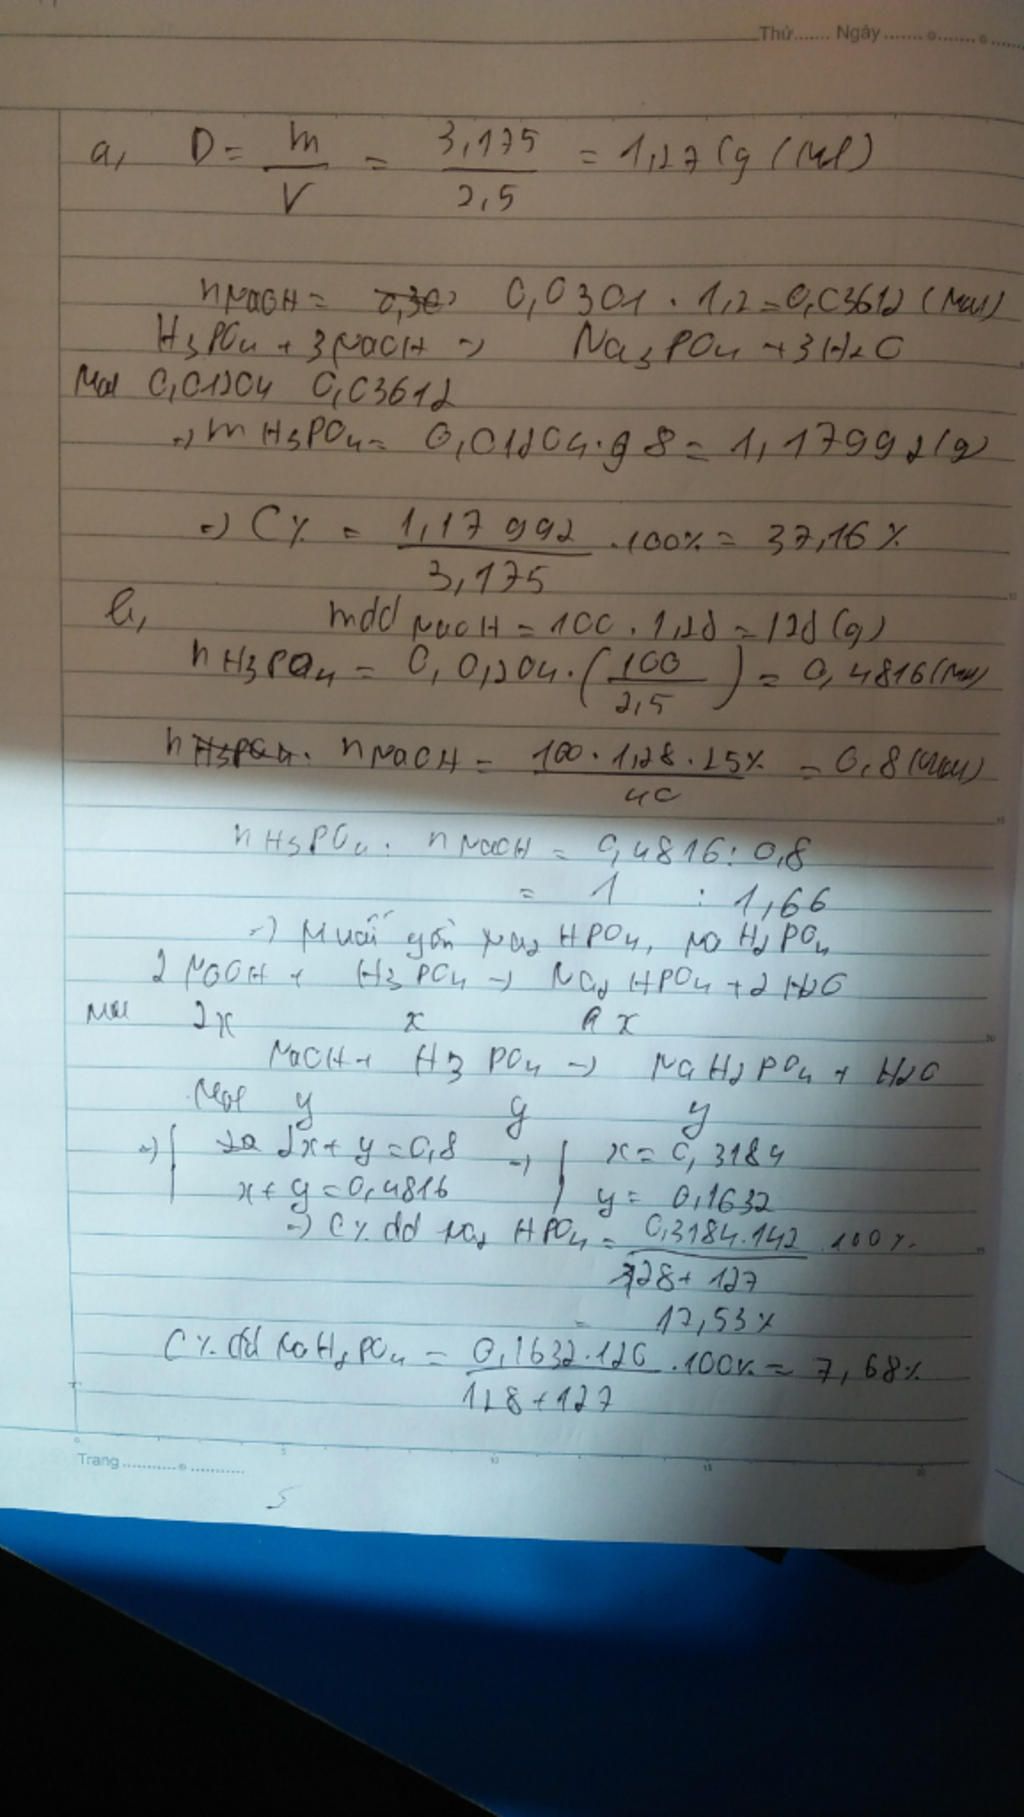 Thứ....... Ngày
a, D = m/V = 3,175/2,5 = 1,27 (g/ml)
nNaOH = 0,0301 . 1,2 = 0,03612 (mol)
H3PO4 + 3NaOH -> Na3PO4 + 3H2O
Mol 0,01204 0,03612
=> mH3PO4 = 0,01204.98 = 1,17992 (g)
=> C% = 1,17992/3,175 .100% = 37,16%
b, mdd NaOH = 100 . 1,28 = 128 (g)
nH3PO4 = 0,01204.(100/2,5) = 0,4816 (mol)
nNaOH = 100.1,28.25%/40 = 0,8 (mol)
nH3PO4 : nNaOH = 0,4816 : 0,8
= 1 : 1,66
=> Muối gồm Na2HPO4, NaH2PO4
2NaOH + H3PO4 -> Na2HPO4 + 2H2O
mol 2x x x
NaOH + H3PO4 -> NaH2PO4 + H2O
Mol y y y
=> 2x + y = 0,8 => x = 0,3184
x + y = 0,4816 y = 0,1632
=> C% dd Na2HPO4 = 0,3184.142/128+127 .100%
= 17,53%
C% dd NaH2PO4 = 0,1632.120/128+127 .100% = 7,68%
Trang
5